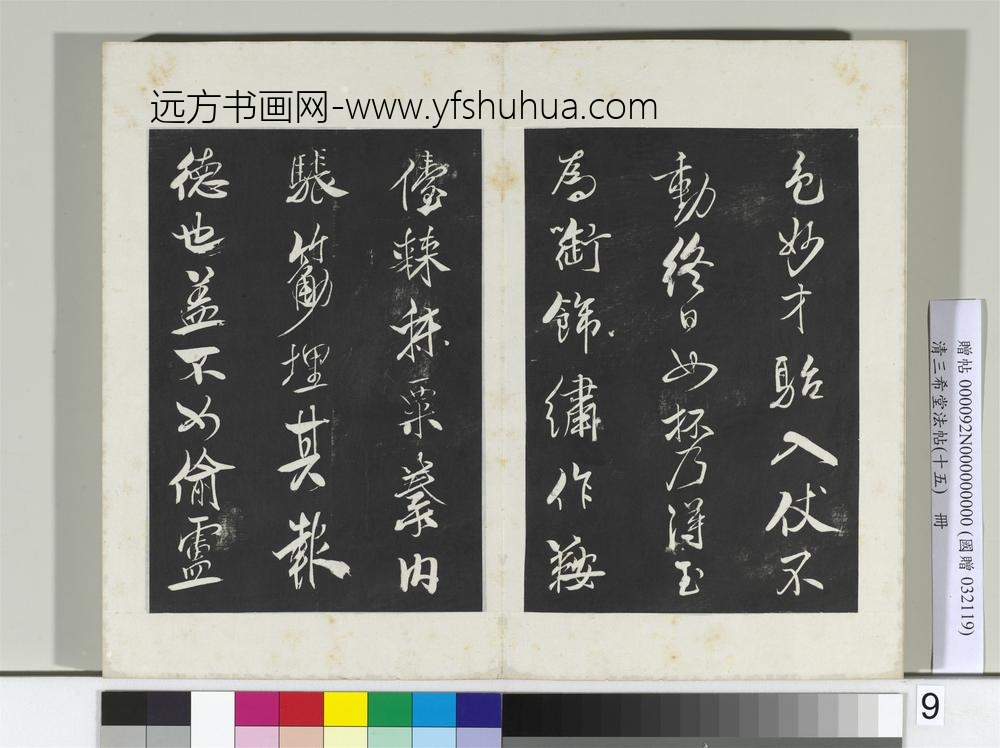 远方书画网-www.yfshuhua.com
色妙才駘入仗不
動終日如坯乃得玉
為銜飾繡作鞍
儓棘秣粟豢肉
脹筋埋其報
德也蓋不如偷盧
贈帖 000092N000000000 (國贈 032119)
清三希堂法帖(十五) 冊
9